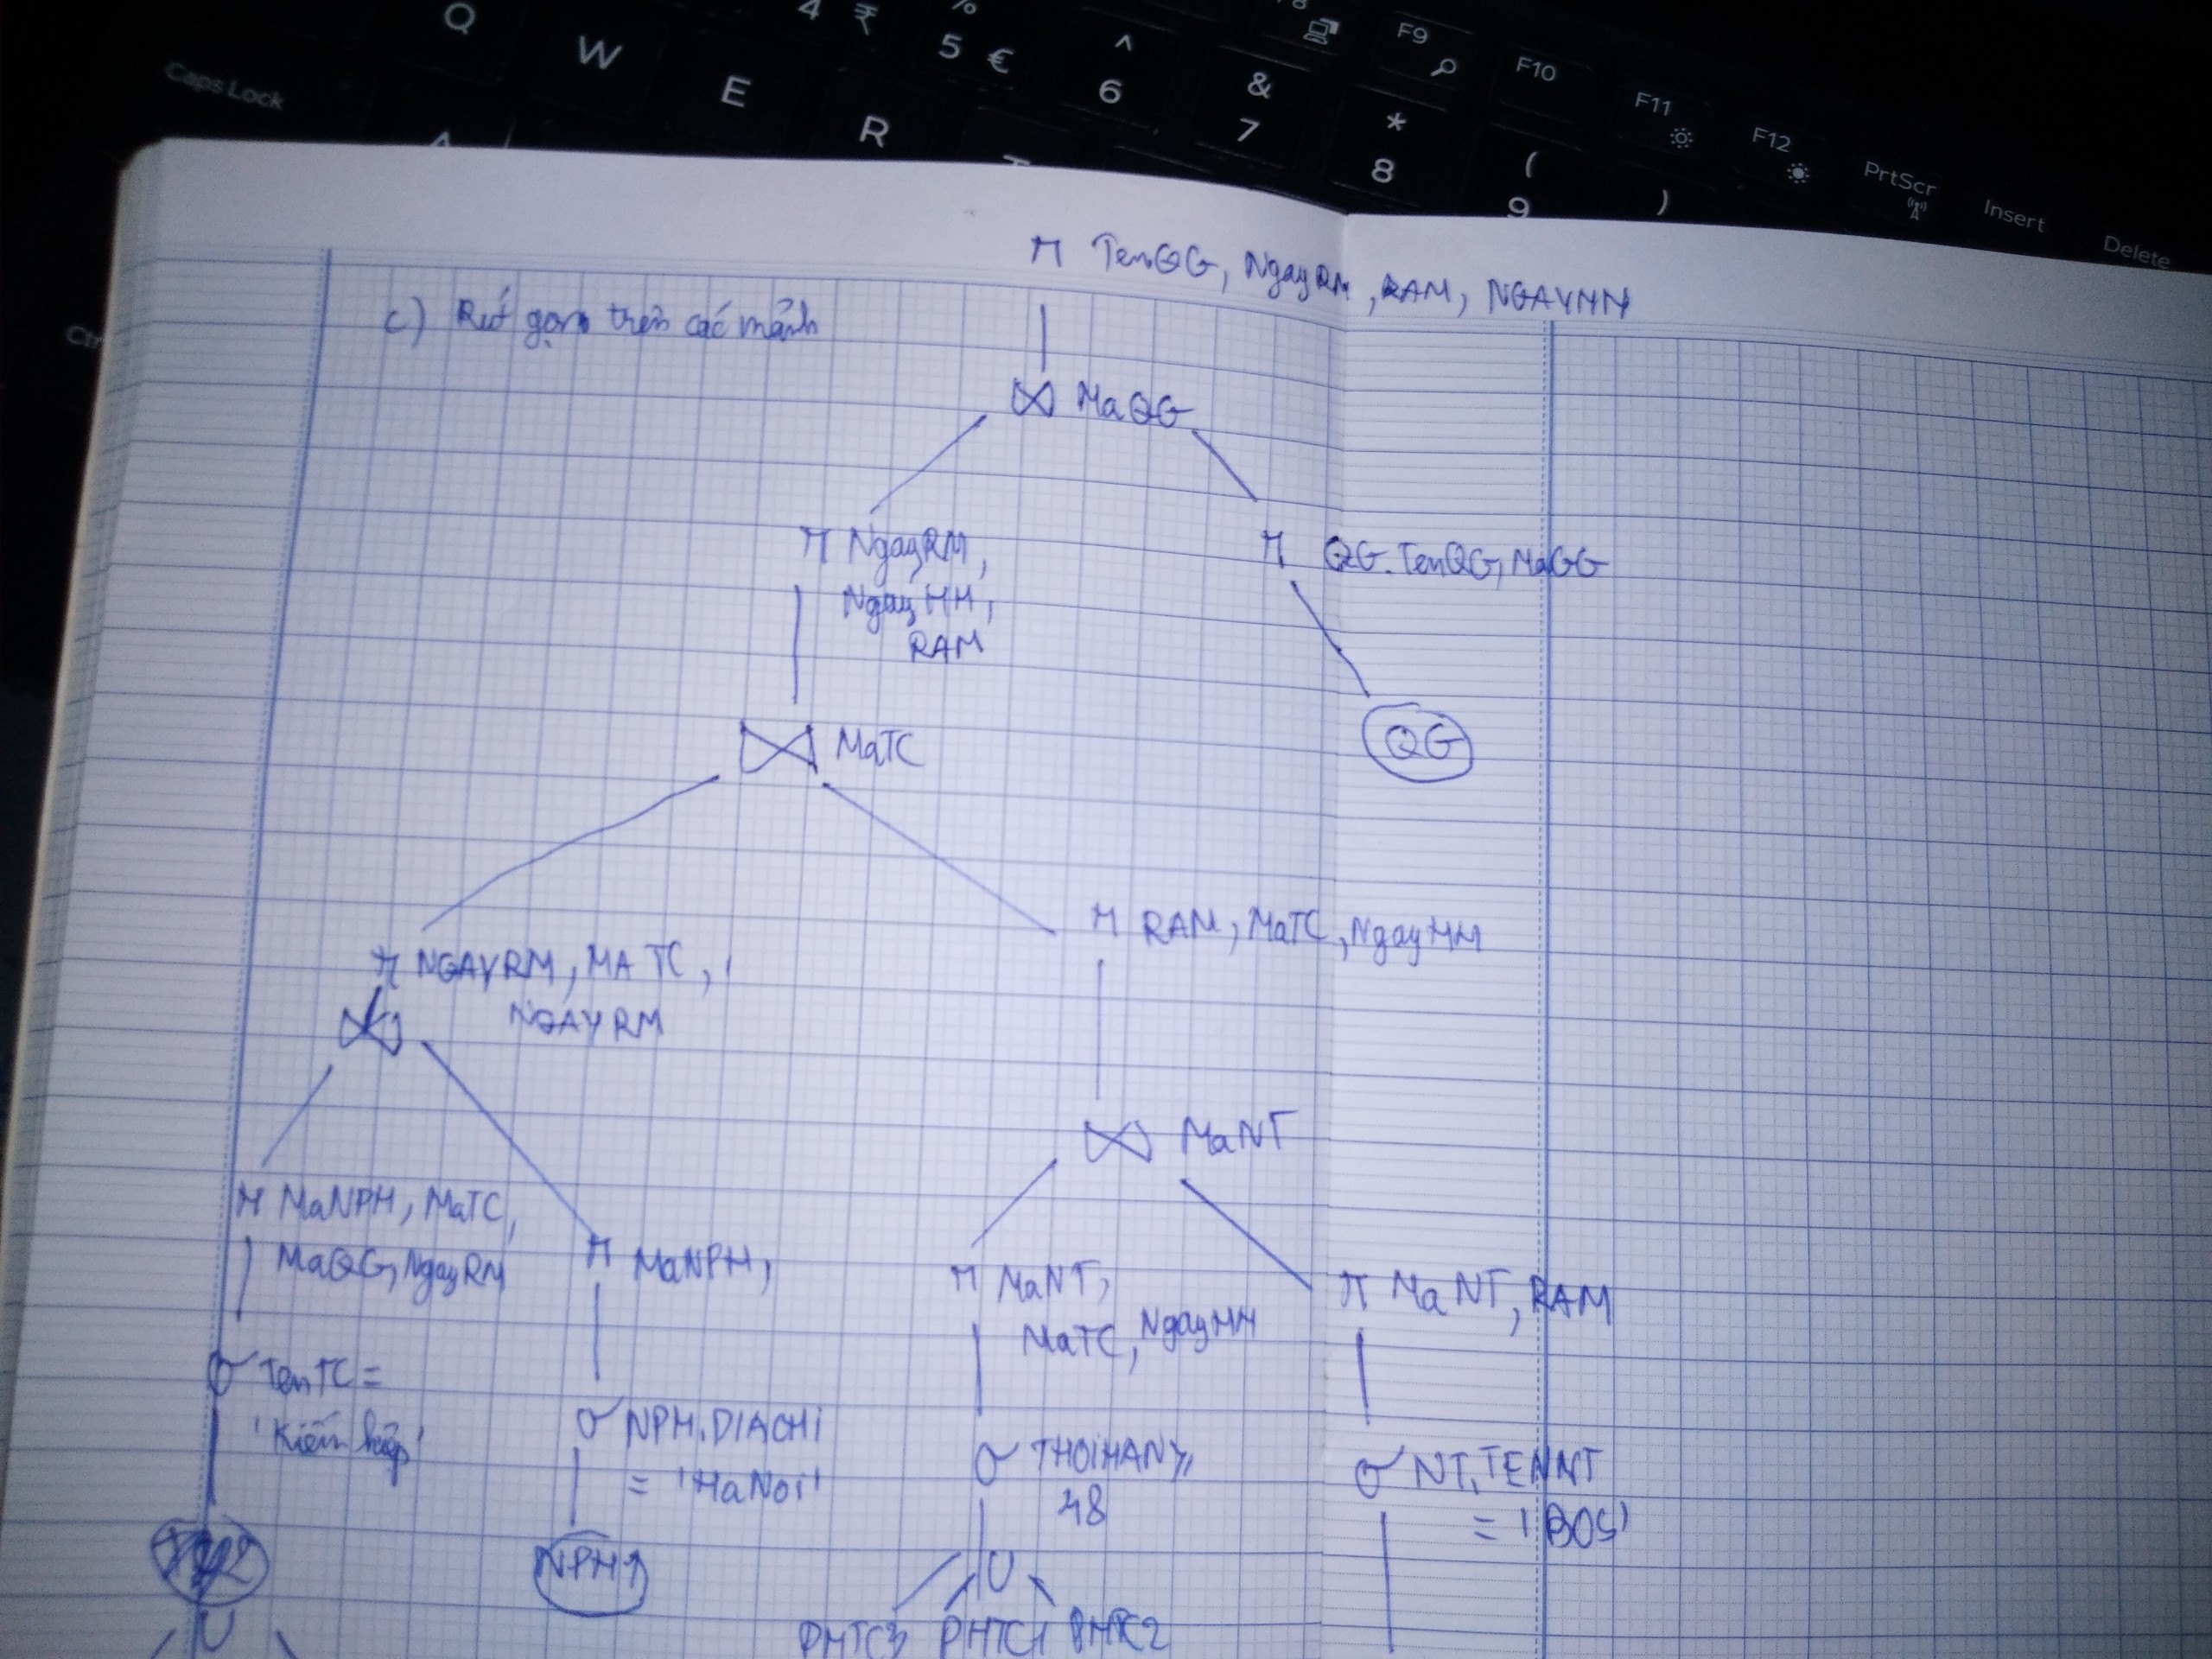 Q
W
E
R
4 ₹
%
5 €
^
6
&
7
*
8
(
9
)
F9
F10
F11
F12
PrtScr
Insert
Delete
Caps Lock
Ctr
π TenQG, NgayRM, RAM, NGAYHH
c) Rút gọn trên các mảnh
⋈ MaQG
π NgayRM,
NgayHH,
RAM
π QG.TenQG, MaQG
⋈ MaTC
QG
π NGAYRM, MATC,
NGAYRM
⋈
π RAM, MaTC, NgayHH
⋈ MaNT
π MaNPH, MaTC,
MaQG, NgayRM
π MaNPH,
π MaNT,
MaTC, NgayHH
π MaNT, RAM
σ TenTC =
'Kiếm hiệp'
σ NPH.DIACHI
= 'HaNoi'
σ THOIHAN >,
48
σ NT.TENNT
= 'BOS'
NPH1
∪
∪
PHTC3 PHTC1 PHTC2